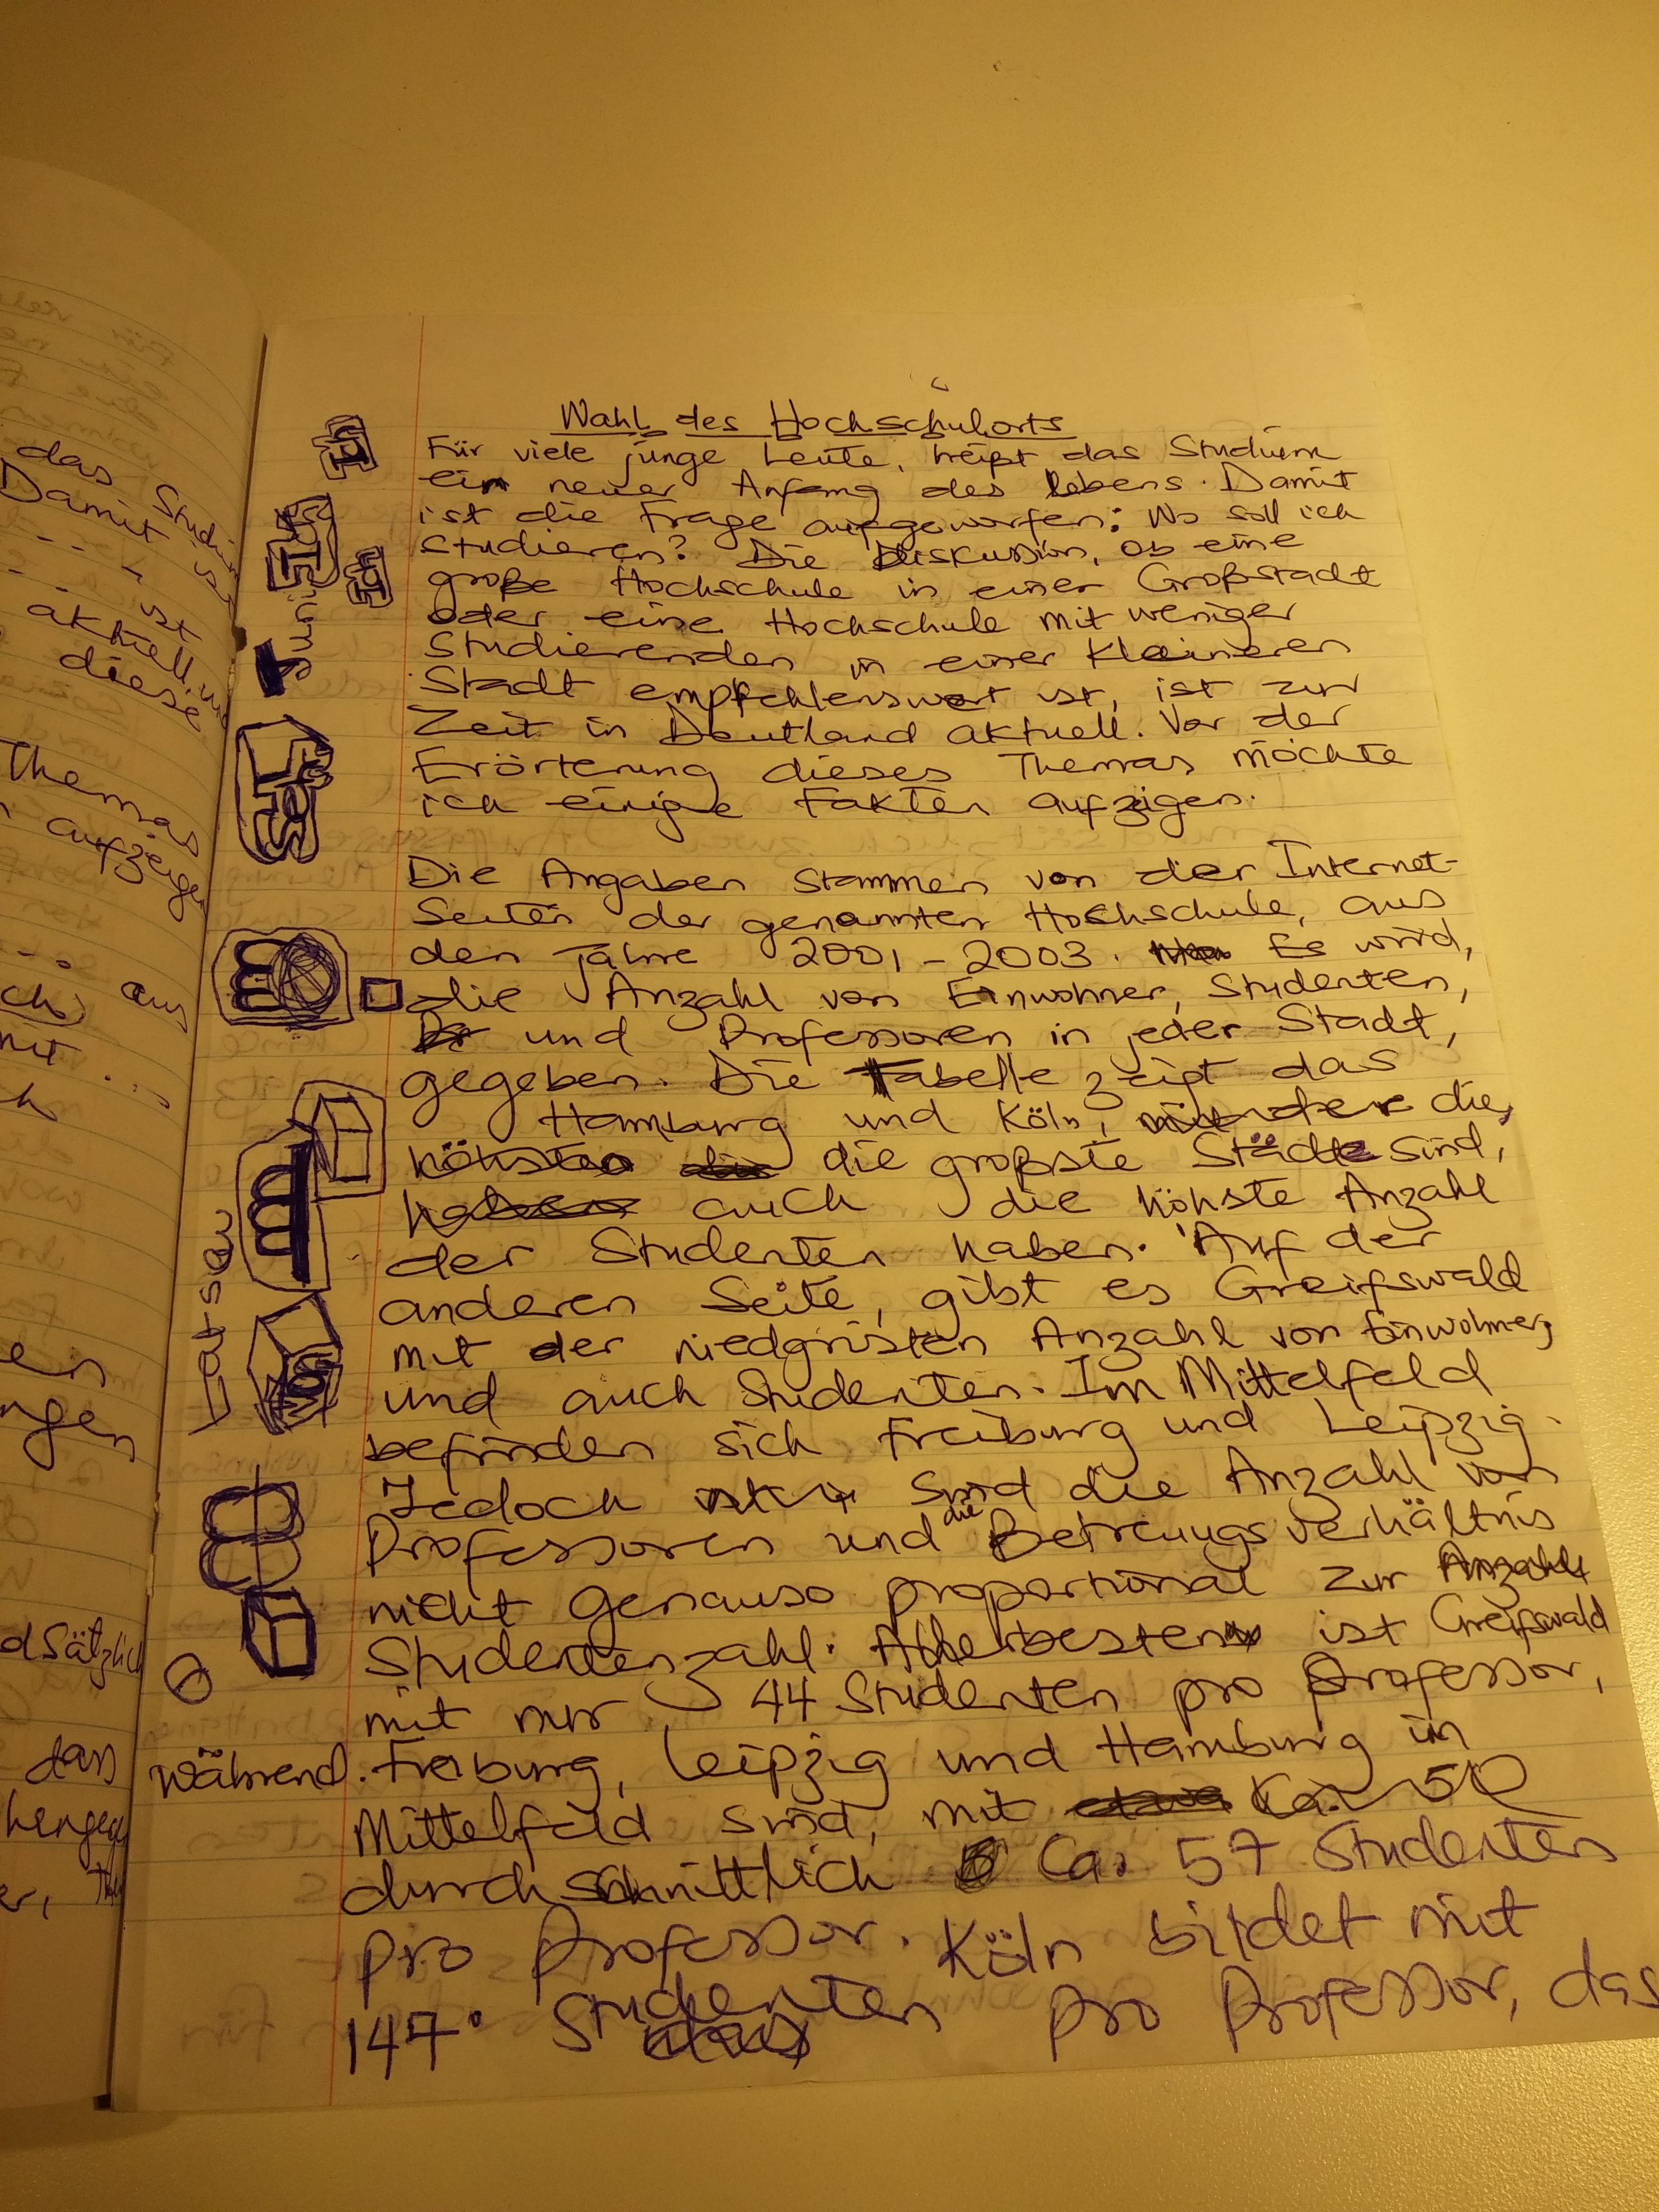 Wahl des Hochschulorts
Für viele junge Leute, heißt das Studium
ein neuer Anfang des lebens. Damit
ist die Frage aufgeworfen: Wo soll ich
studieren? Die Diskussion, ob eine
große Hochschule in einer Großstadt
oder eine Hochschule mit weniger
Studierenden in einer kleineren
Stadt empfehlenswert ist, ist zur
Zeit in Deutland aktuell. Vor der
Erörterung dieses Themas möchte
ich einige Fakten aufzeigen.
Die Angaben stammen von der Internet-
Seiten der genannten Hochschule, aus
den Jahre 2001-2003. Es wird,
die Anzahl von Einwohner, Studenten,
und Professoren in jeder Stadt,
gegeben. Die Tabelle zeigt das
Hamburg und Köln, die
die großste Städte sind,
auch die höhste Anzahl
der Studenten haben. Auf der
anderen Seite, gibt es Greifswald
mit der niedgristen Anzahl von Einwohner,
und auch Studenten. Im Mittelfeld
befinden sich Freiburg und Leipzig.
Jedoch sind die Anzahl von
Professoren und die Betreuugsverhältnis
nicht genauso proportional zur
Studentenzahl. Allerbesten ist Greifswald
mit nur 44 Studenten pro Professor,
während Freiburg, Leipzig und Hamburg in
Mittelfeld sind, mit
durchschnittlich Ca. 57 Studenten
pro Professor. Köln bildet mit
147 Studenten pro Professor, das
das Studi
Damit
ist
aktuell, und
diese
Themas
aufzeige
aus
mit ...
ein
ngen
dsätzlich
dass
Juni